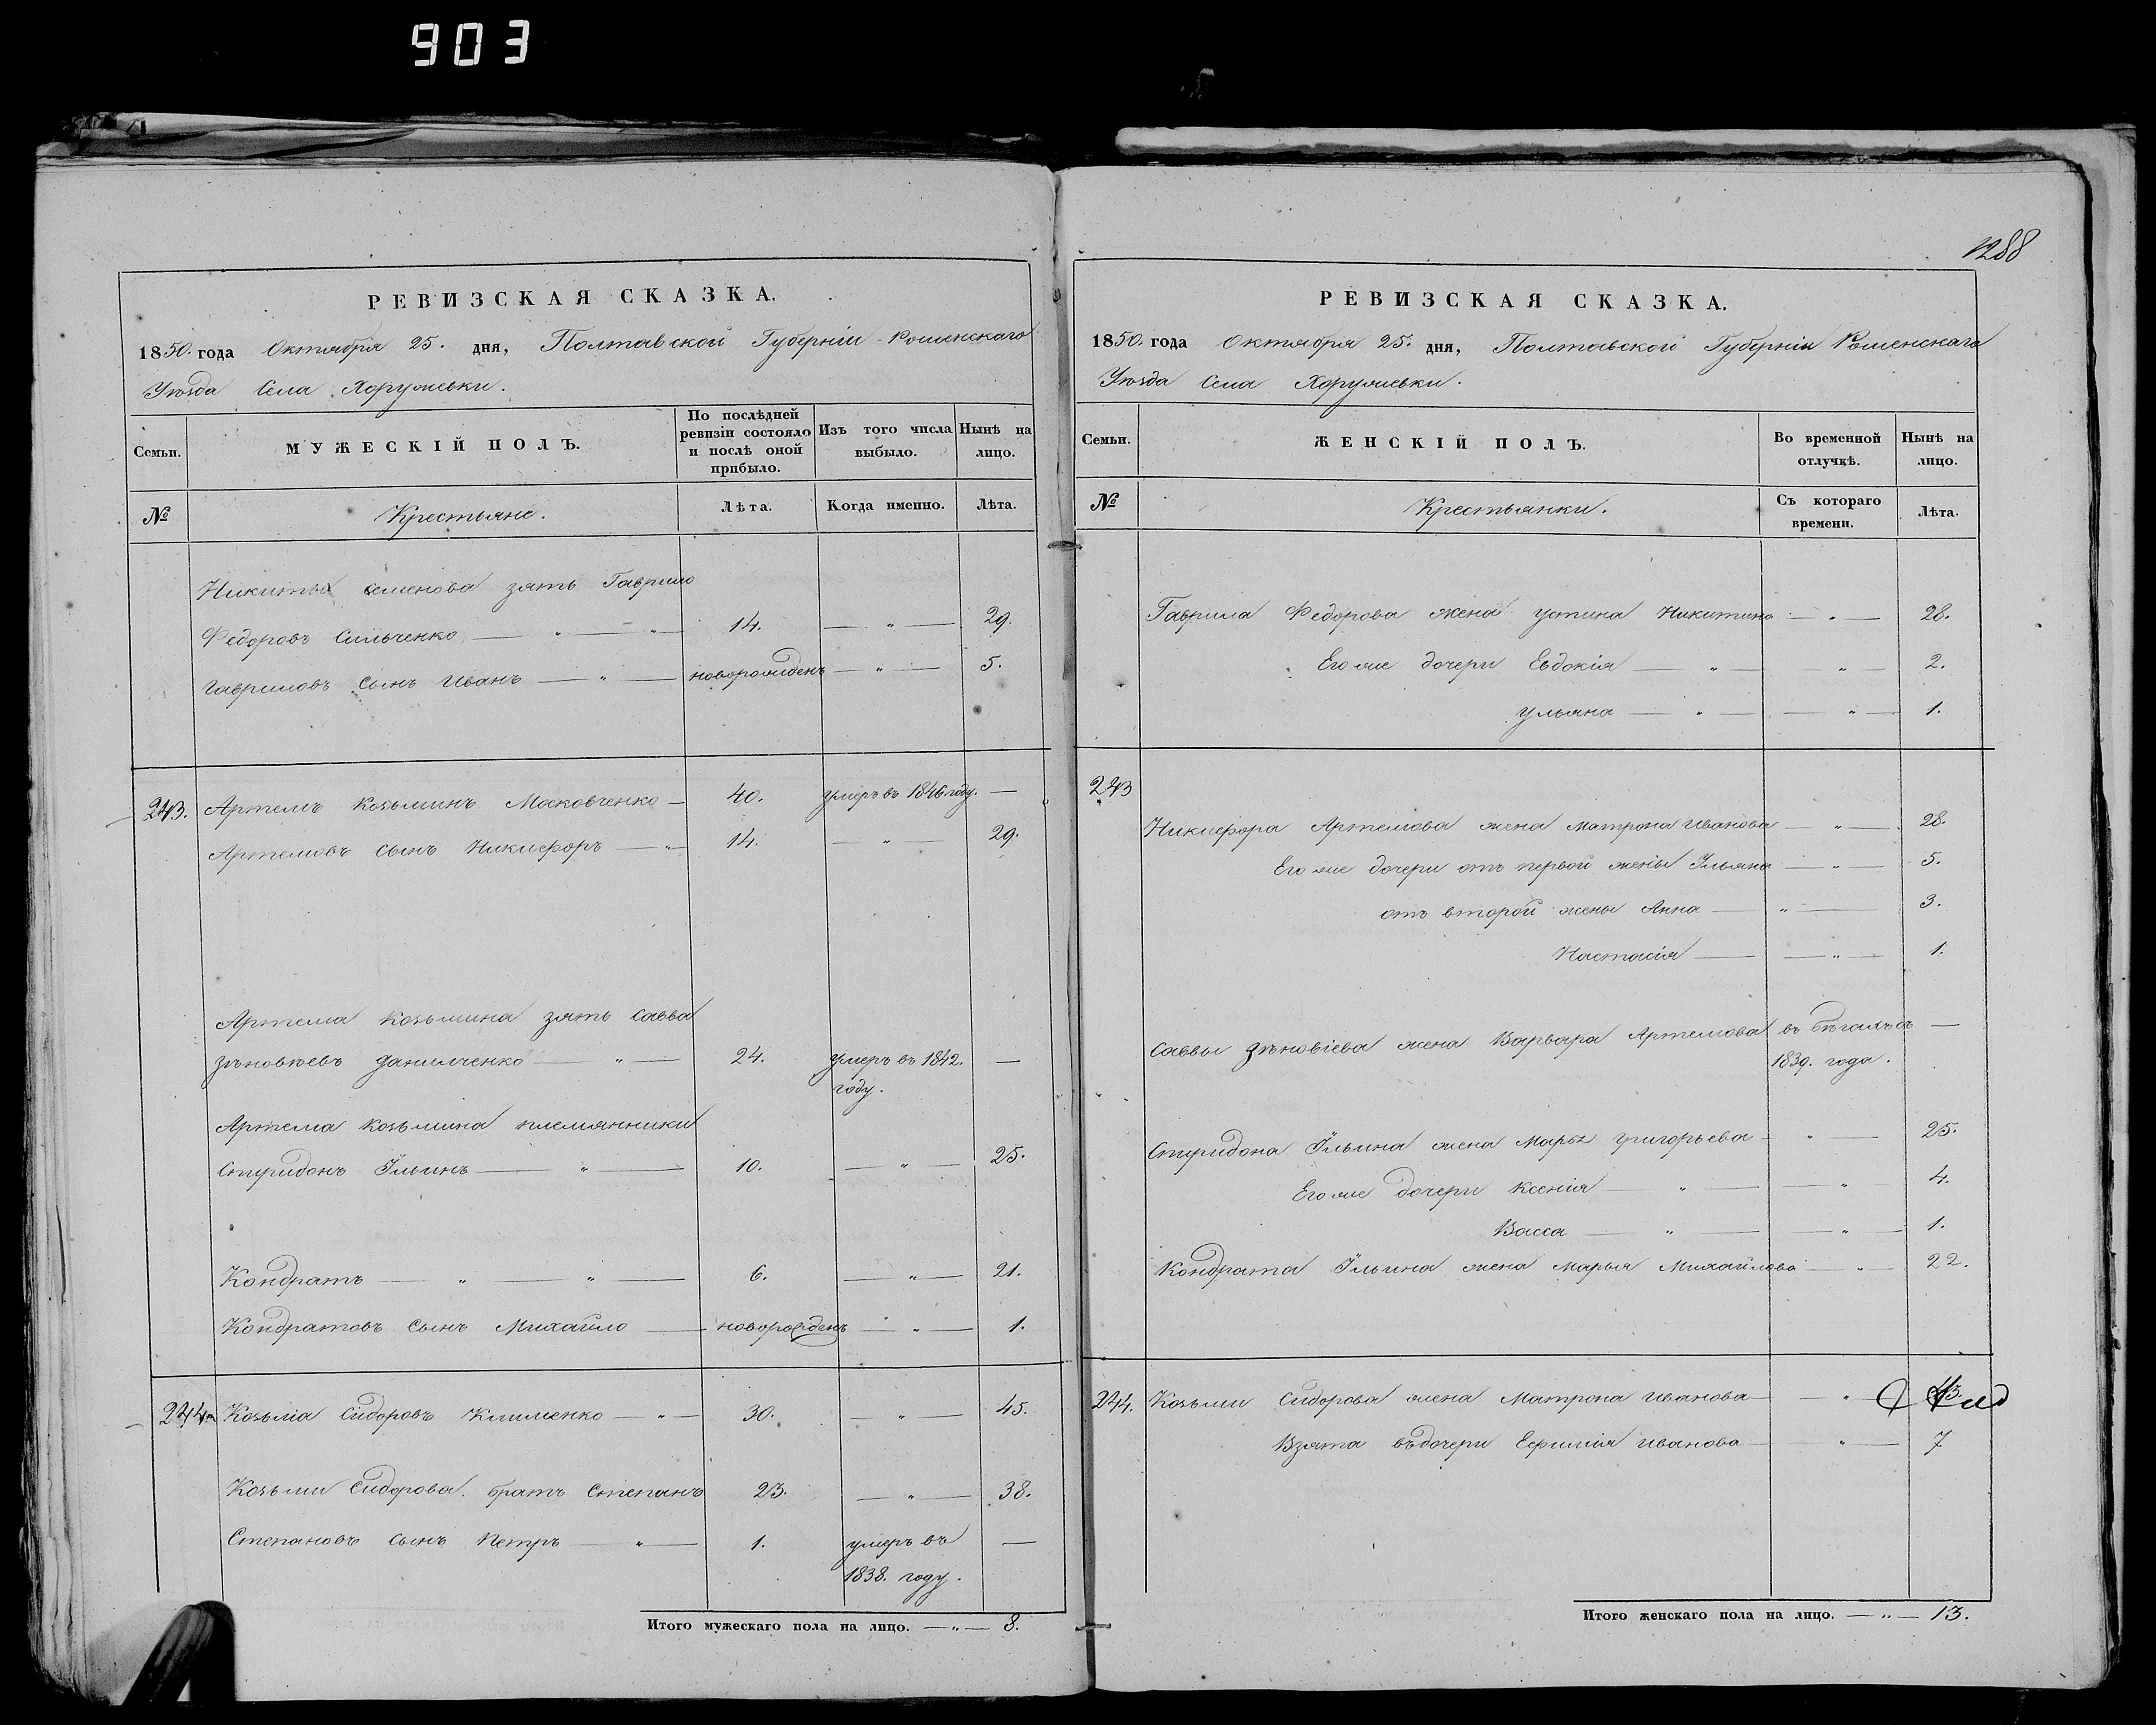 903
РЕВИЗСКАЯ СКАЗКА.
1850. года Октября 25. дня, Полтавской Губерніи Роменскаго
Уѣзда Села Хоружевки.
Семьи.
МУЖЕСКІЙ ПОЛЪ.
По послѣдней ревизіи состояло и послѣ оной прибыло.
Изъ того числа выбыло.
Нынѣ на лицо.
№
Крестьяне.
Лѣта.
Когда именно.
Лѣта.
Никиты Семенова зять Гаврило
Федоровъ Сильченко — " — " — 14. — " — 29.
Гавриловъ сынъ Иванъ — " — новорожденъ — " — 5.
243. Артемъ Козьминъ Московченко — 40. умеръ въ 1846 году. —
Артемовъ сынъ Никифоръ — " — 14. — " — 29.
Артема Козьмина зять Савва
Зѣновѣевъ Данилченко — " — 24. умеръ въ 1842. —
году.
Артема Козьмина племянники
Спиридонъ Ильинъ — " — 10. — " — 25.
Кондратъ — " — " — 6. — " — 21.
Кондратовъ сынъ Михайло — новорожденъ — " — 1.
244. Козьма Сидоровъ Клименко — " — 30. — " — 45.
Козьми Сидорова братъ Степанъ 23. — " — 38.
Степановъ сынъ Петръ — " — 1. умеръ въ —
1838. году.
Итого мужескаго пола на лицо. — " — 8.
1288
РЕВИЗСКАЯ СКАЗКА.
1850. года Октября 25. дня, Полтавской Губерніи Роменскаго
Уѣзда Села Хоружевки.
Семьи.
ЖЕНСКІЙ ПОЛЪ.
Во временной отлучкѣ.
Нынѣ на лицо.
№
Крестьянки.
Съ котораго времени.
Лѣта.
Гаврила Федорова жена Устина Никитина — " — 28.
Его же дочери Евдокія — " — " — 2.
Ульяна — " — — " — 1.
243
Никифора Артемова жена Матрона Иванова — " — 28.
Его же дочери отъ первой жены Ульяна — " — 5.
отъ второй жены Анна — " — 3.
Настасія — — " — 1.
Саввы Зѣновіева жена Варвара Артемова въ бѣгахъ съ —
1839. года.
Спиридона Ильина жена Марья Григорьева — " — 25.
Его же дочери Ксенія — " — — " — 4.
Васса — " — — " — 1.
Кондрата Ильина жена Марья Михайлова — " — 22.
244. Козьми Сидорова жена Матрона Иванова — " — 43.
Взята въ дочери Ефимія Иванова — " — 7
Итого женскаго пола на лицо. — " — 13.